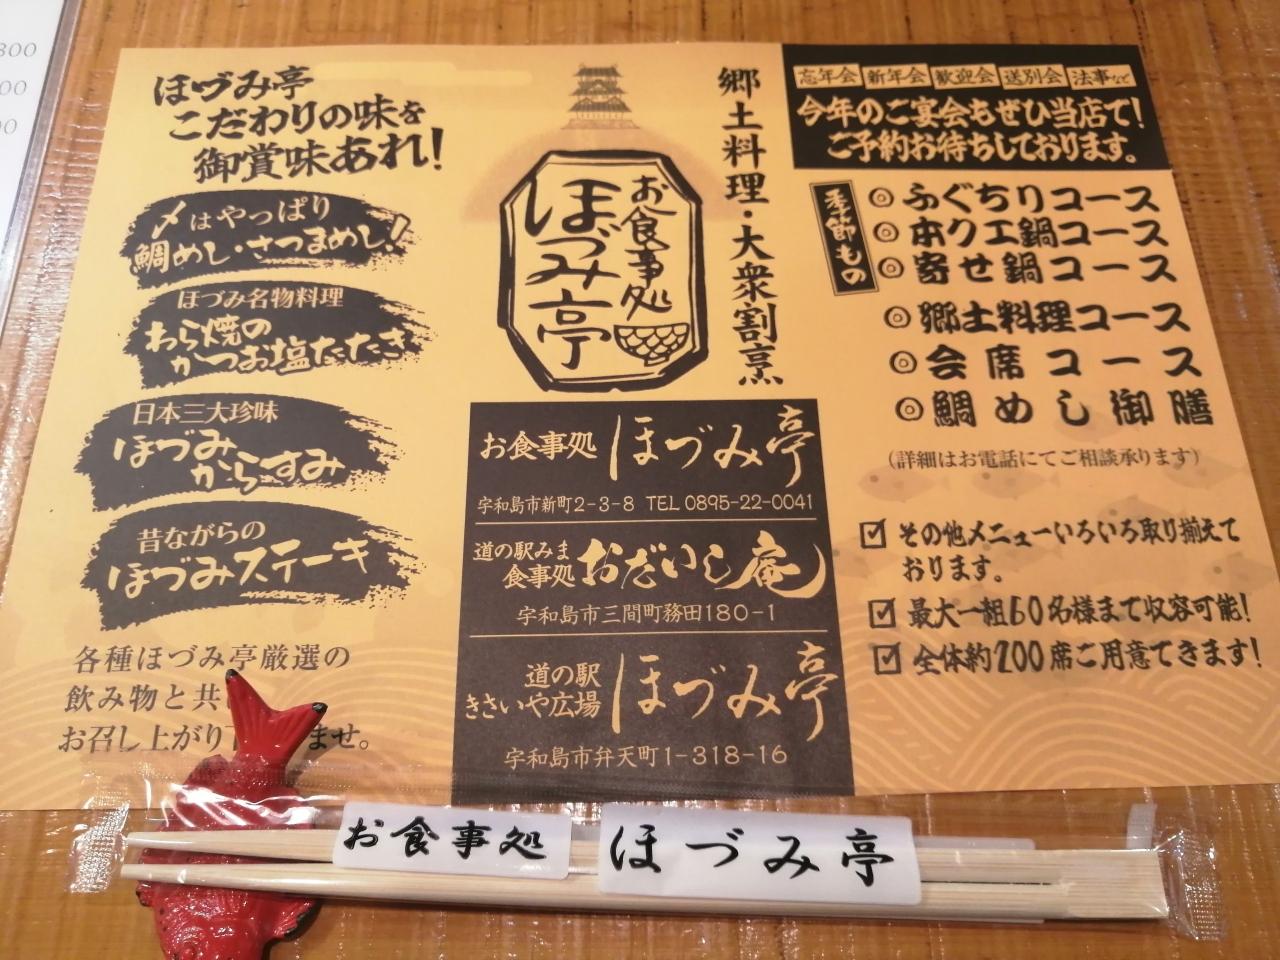 800
00
00
ほづみ亭
こだわりの味を
御賞味あれ!
〆はやっぱり
鯛めし・さつまめし!
ほづみ名物料理
わら焼の
かつお塩たたき
日本三大珍味
ほづみ
からすみ
昔ながらの
ほづみステーキ
各種ほづみ亭厳選の
飲み物と共
お召し上がり下
ませ。
お食事処
ほづみ亭
郷土料理・大衆割烹
お食事処 ほづみ亭
宇和島市新町2-3-8 TEL 0895-22-0041
道の駅みま
食事処 おだいし庵
宇和島市三間町務田180-1
道の駅
きさいや広場 ほづみ亭
宇和島市弁天町1-318-16
忘年会 新年会 歓迎会 送別会 法事など
今年のご宴会もぜひ当店で!
ご予約お待ちしております。
季節もの
◎ふぐちりコース
◎本クエ鍋コース
◎寄せ鍋コース
◎郷土料理コース
◎会席コース
◎鯛めし御膳
(詳細はお電話にてご相談承ります)
☑その他メニューいろいろ取り揃えて
おります。
☑最大一組60名様まで収容可能!
☑全体約200席ご用意できます!
お食事処 ほづみ亭